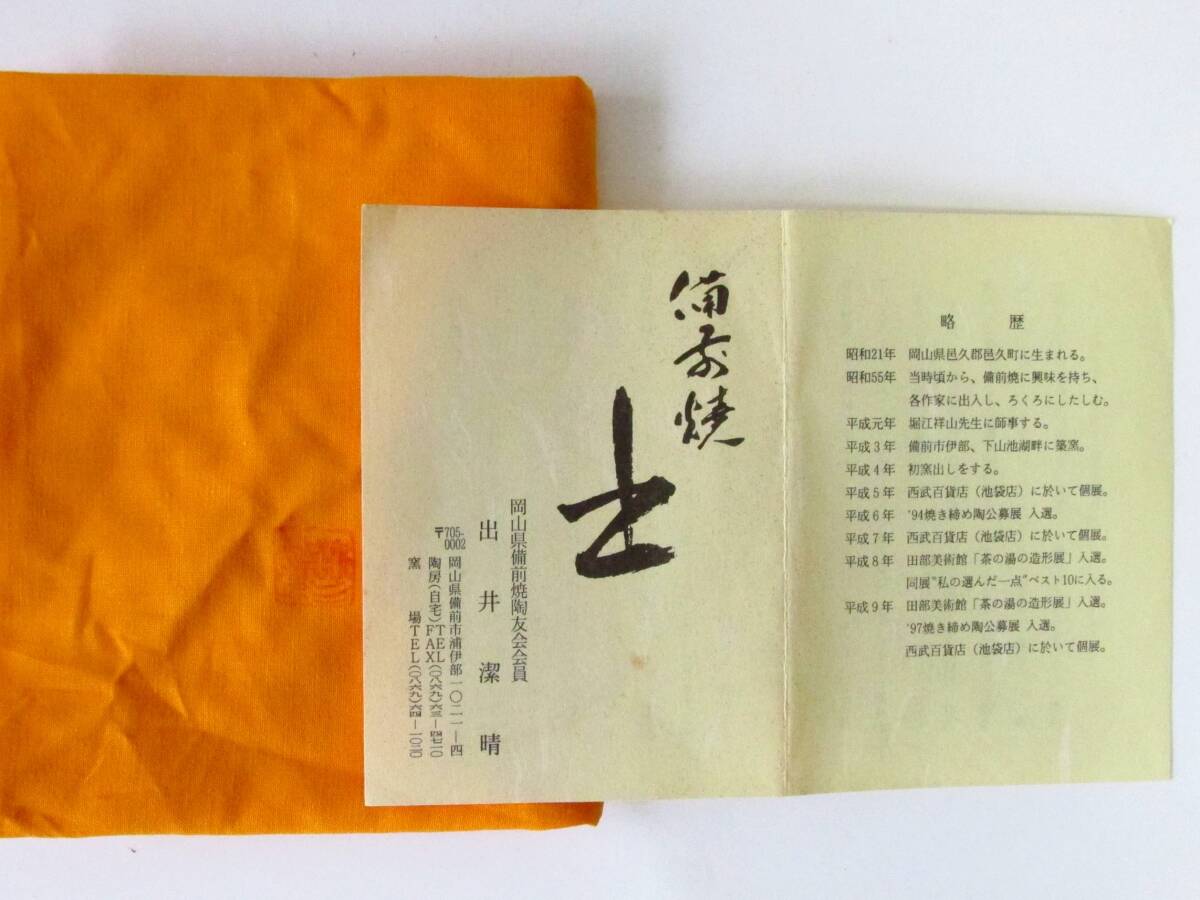 備前焼
土
岡山県備前焼陶友会会員
出井潔晴
〒705-0002 岡山県備前市浦伊部一〇二一―四
陶房(自宅)TEL
FAX(〇八六九)六三―四七一〇
窯場TEL(〇八六九)六四―一〇三〇
略歴
昭和21年 岡山県邑久郡邑久町に生まれる。
昭和55年 当時頃から、備前焼に興味を持ち、
各作家に出入し、ろくろにしたしむ。
平成元年 堀江祥山先生に師事する。
平成3年 備前市伊部、下山池湖畔に築窯。
平成4年 初窯出しをする。
平成5年 西武百貨店(池袋店)に於いて個展。
平成6年 '94焼き締め陶公募展 入選。
平成7年 西武百貨店(池袋店)に於いて個展。
平成8年 田部美術館「茶の湯の造形展」入選。
同展"私の選んだ一点"ベスト10に入る。
平成9年 田部美術館「茶の湯の造形展」入選。
'97焼き締め陶公募展 入選。
西武百貨店(池袋店)に於いて個展。